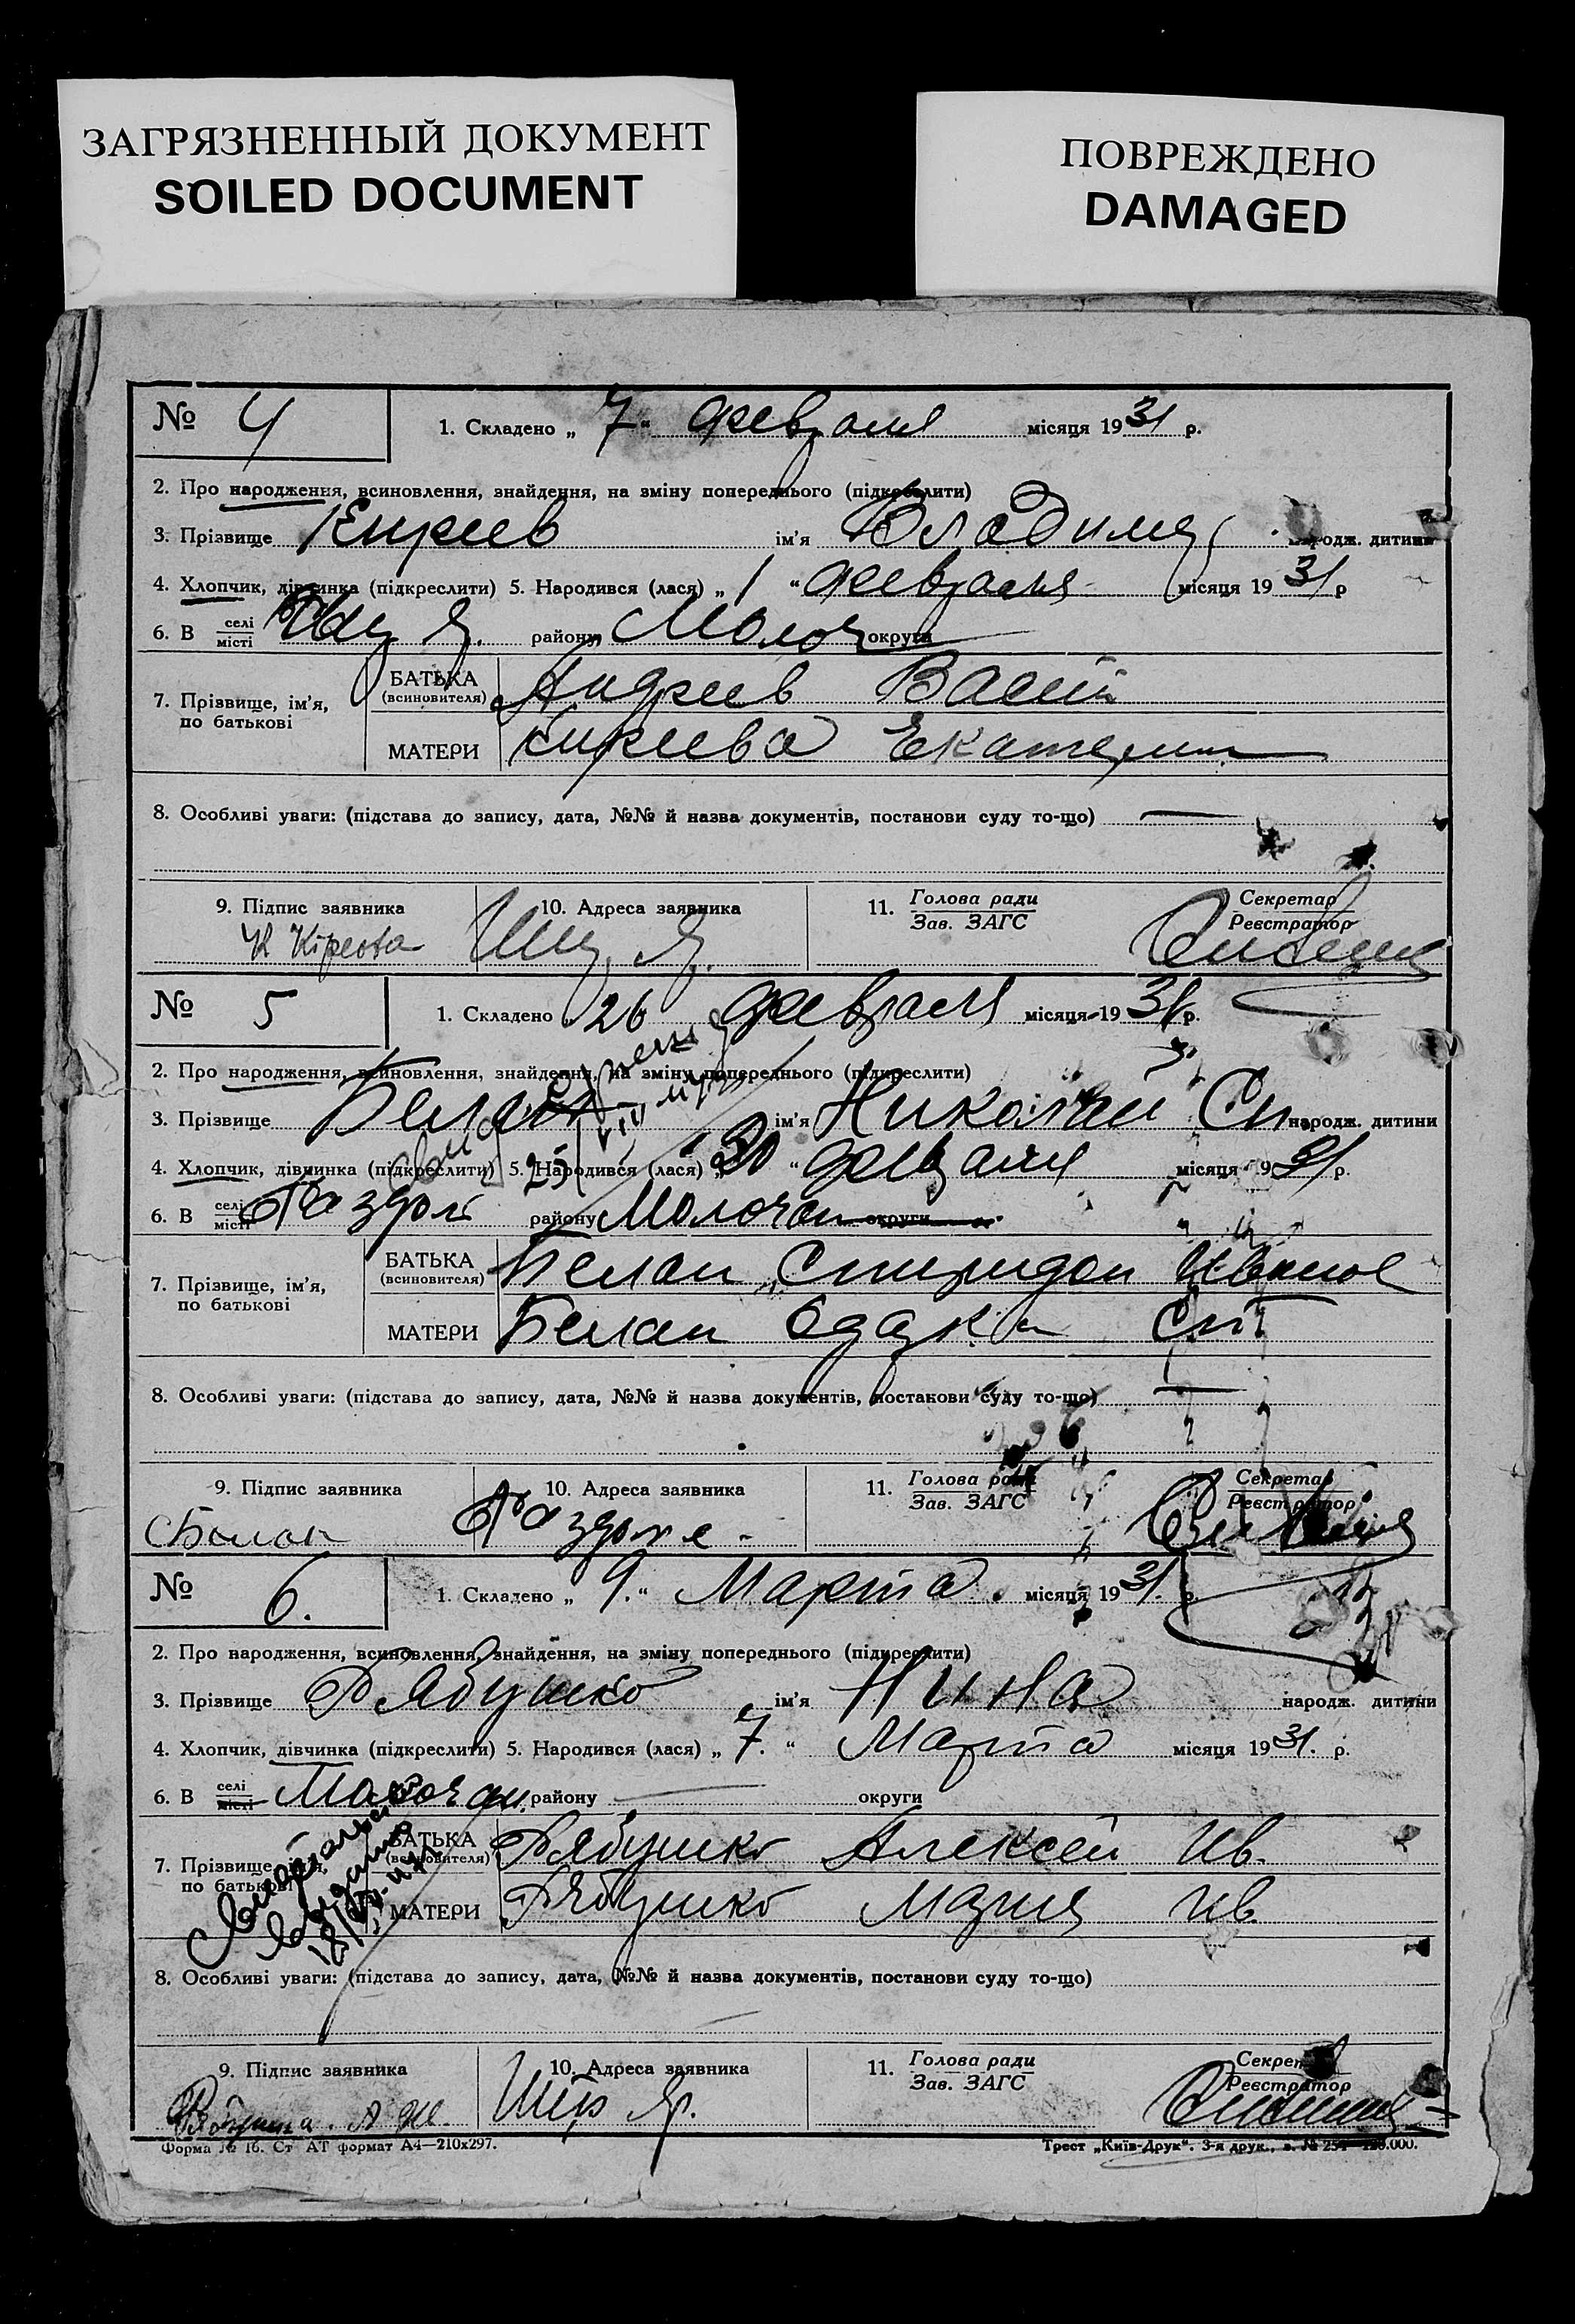 ЗАГРЯЗНЕННЫЙ ДОКУМЕНТ
SOILED DOCUMENT
ПОВРЕЖДЕНО
DAMAGED
№ 4
1. Складено „ 7 “ февраля місяця 1931 р.
2. Про народження, всиновлення, знайдення, на зміну попереднього (підкреслити)
3. Прізвище Киреев ім'я Владимир народж. дитини
4. Хлопчик, дівчинка (підкреслити) 5. Народився (лася) „ 1 “ февраля місяця 1931 р
6. В селі місті району Молоч округи
7. Прізвище, ім'я, по батькові
БАТЬКА (всиновителя) Андреев
МАТЕРИ Киреева Екатерина
8. Особливі уваги: (підстава до запису, дата, №№ й назва документів, постанови суду то-що)
9. Підпис заявника
10. Адреса заявника
11. Голова ради Зав. ЗАГС
Секретар Реєстратор
К Кіреева
№ 5
1. Складено „ 26 февраля місяця 1931 р.
2. Про народження, всиновлення, знайдення, на зміну попереднього (підкреслити)
3. Прізвище Белан ім'я Николай Сп. народж. дитини
4. Хлопчик, дівчинка (підкреслити) 5. Народився (лася) „ 20 “ февраля місяця 1931 р.
6. В селі місті Раздол району Молочан округи
7. Прізвище, ім'я, по батькові
БАТЬКА (всиновителя) Белан Спиридон Иванов
МАТЕРИ Белан Одарка
8. Особливі уваги: (підстава до запису, дата, №№ й назва документів, постанови суду то-що)
9. Підпис заявника
10. Адреса заявника
11. Голова ради Зав. ЗАГС
Секретар Реєстратор
СБелан Раздоле
№ 6.
1. Складено „ 9. “ Марта місяця 1931. р.
2. Про народження, всиновлення, знайдення, на зміну попереднього (підкреслити)
3. Прізвище Рябушко ім'я Нина народж. дитини
4. Хлопчик, дівчинка (підкреслити) 5. Народився (лася) „ 7. “ Марта місяця 1931. р.
6. В селі місті Молочан. району округи
7. Прізвище, ім'я, по батькові
БАТЬКА (всиновителя) Рябушко Алексей Ив.
МАТЕРИ Рябушко Мария Ив.
8. Особливі уваги: (підстава до запису, дата, №№ й назва документів, постанови суду то-що)
9. Підпис заявника
10. Адреса заявника
11. Голова ради Зав. ЗАГС
Секретар Реєстратор
Форма № 16. Ст АТ формат А4—210х297.
Трест „Київ-Друк“. 3-я друк.,